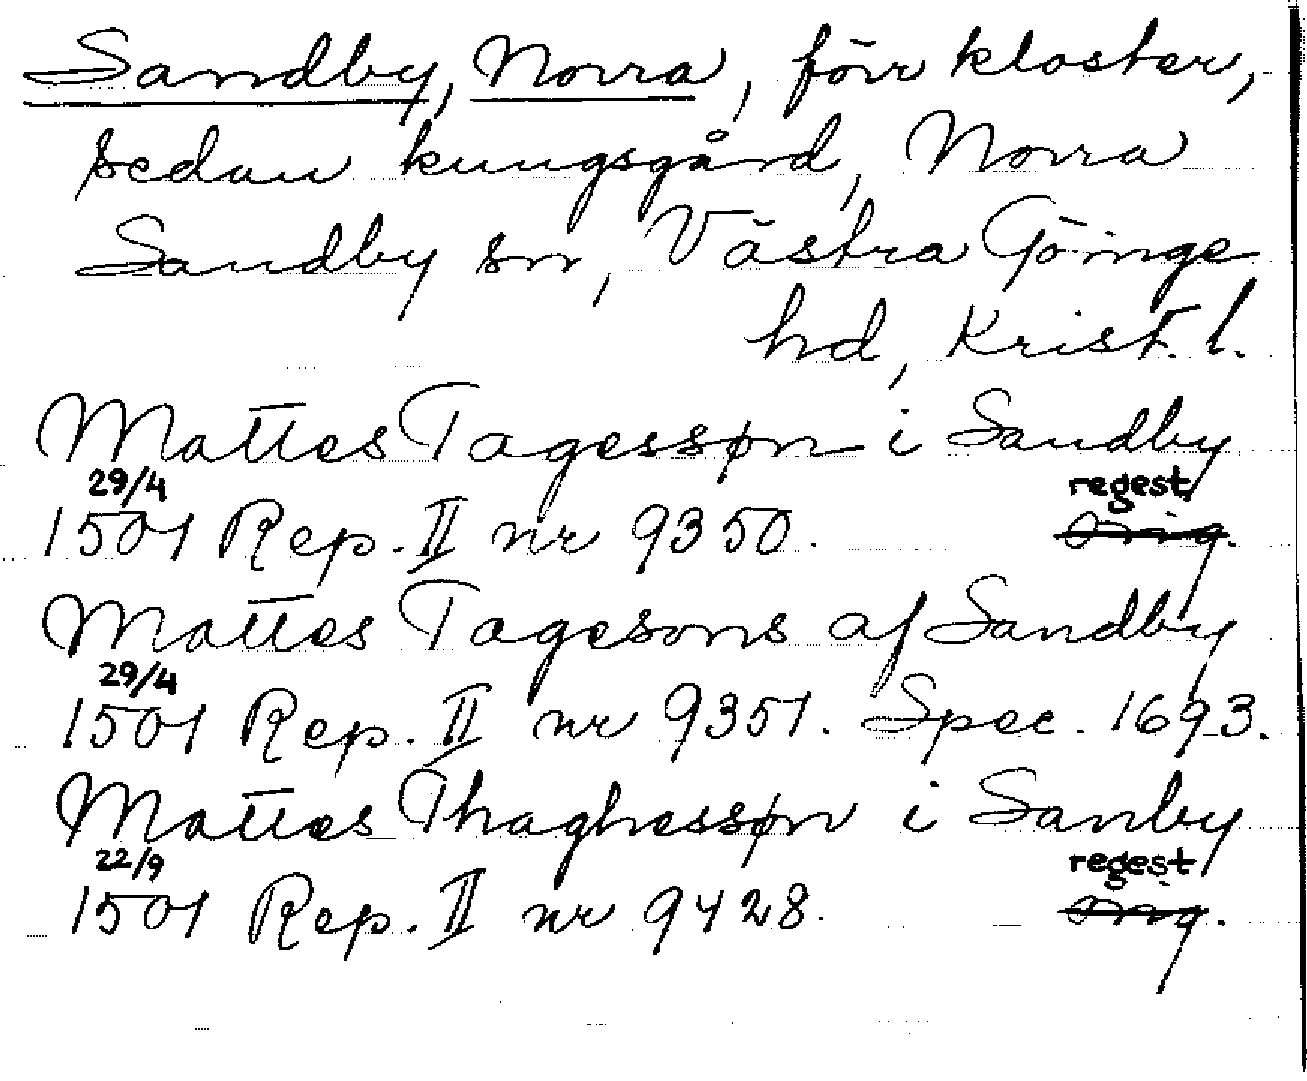 Sandby, Norra, förr kloster,
sedan kungsgård, Norra
Sandby sn, Västra Göinge
hd, Krist. l.
Mattes Tagessøn i Sandby
29/4 regest
1501 Rep. II nr 9350. orig.
Mattes Tagesøns af Sandby
29/4
1501 Rep. II nr 9351. Spec. 1693.
Mattes Thaghessøn i Sanby
22/9 regest
1501 Rep. II nr 9428. orig.